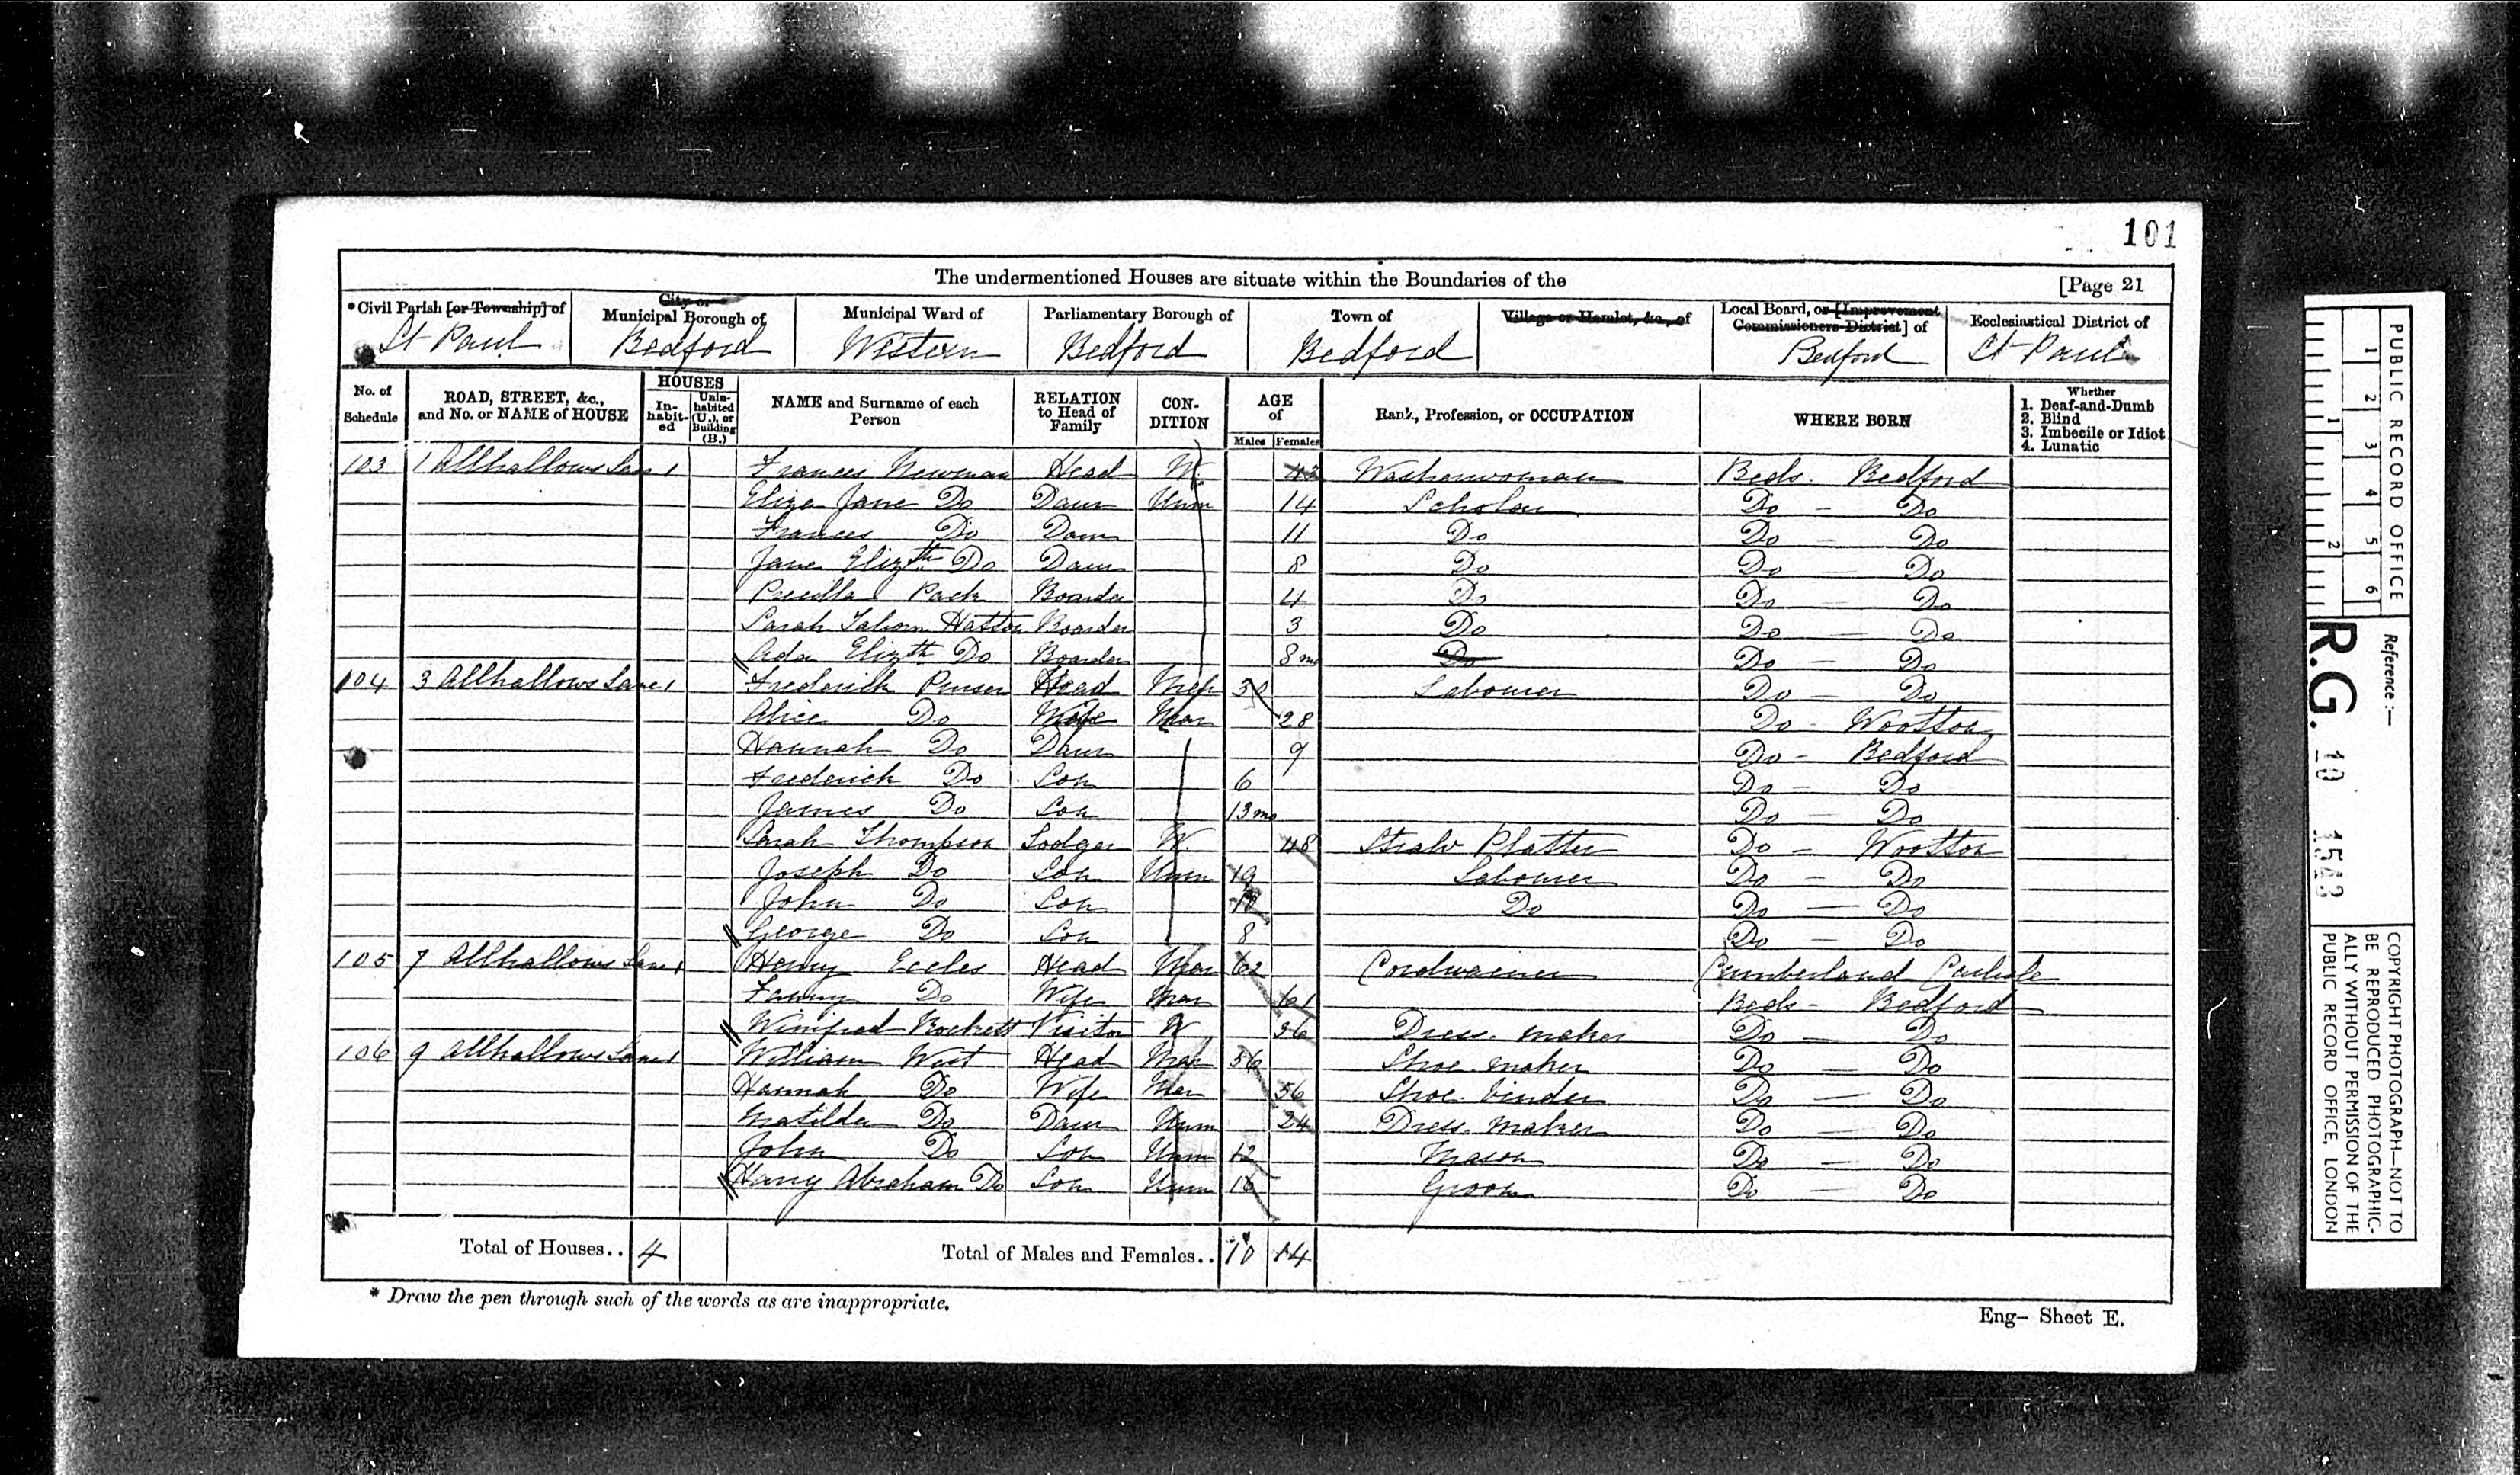 101
The undermentioned Houses are situate within the Boundaries of the [Page 21
*Civil Parish [or Township] of City or Municipal Borough of Municipal Ward of Parliamentary Borough of Town of Village or Hamlet, &c., of Local Board, or [Improvement Commissioners District] of Ecclesiastical District of
St Paul Bedford Western Bedford Bedford Bedford St Paul
No. of Schedule ROAD, STREET, &c., and No. or NAME of HOUSE HOUSES Inhabited Uninhabited (U.), or Building (B.) NAME and Surname of each Person RELATION to Head of Family CONDITION AGE of Males Females Rank, Profession, or OCCUPATION WHERE BORN Whether 1. Deaf-and-Dumb 2. Blind 3. Imbecile or Idiot 4. Lunatic
103 1 Allhallows Lane 1 Frances Newman Head W. 42 Washerwoman Beds. Bedford
Eliza Jane Do Daur Unm 14 Scholar Do - Do
Frances Do Daur 11 Do Do - Do
Jane Elizth Do Daur 8 Do Do - Do
Pack Boarder 4 Do Do - Do
Sarah Hatton Boarder 3 Do Do - Do
Ada Elizth Do Boarder 8 mo Do Do - Do
104 3 Allhallows Lane 1 Frederick Purser Head Mar 30 Labourer Do - Do
Alice Do Wife Mar 28 Do - Wootton
Hannah Do Daur 9 Do - Bedford
Frederick Do Son 6 Do - Do
James Do Son 13 mo Do - Do
Sarah Thompson Lodger W. 48 Straw Platter Do - Wootton
Joseph Do Son Unm 19 Labourer Do - Do
John Do Son Do Do - Do
George Do Son 8 Do - Do
105 7 Allhallows Lane 1 Henry Eccles Head Mar 62 Cordwainer Cumberland Carlisle
Fanny Do Wife Mar 61 Beds - Bedford
Winifred Rockett Visitor W 36 Dress maker Do - Do
106 9 Allhallows Lane 1 William West Head Mar 56 Shoe maker Do - Do
Hannah Do Wife Mar 56 Shoe binder Do - Do
Matilda Do Daur Unm 24 Dress maker Do - Do
John Do Son Unm Mason Do - Do
Harry Abraham Do Son Unm 16 Groom Do - Do
Total of Houses.. 4 Total of Males and Females.. 10 14
* Draw the pen through such of the words as are inappropriate.
Eng- Sheet E.
PUBLIC RECORD OFFICE
1 2 3 4 5 6
1 2
Reference:-
R.G. 10 1543
COPYRIGHT PHOTOGRAPH—NOT TO
BE REPRODUCED PHOTOGRAPHIC-
ALLY WITHOUT PERMISSION OF THE
PUBLIC RECORD OFFICE, LONDON